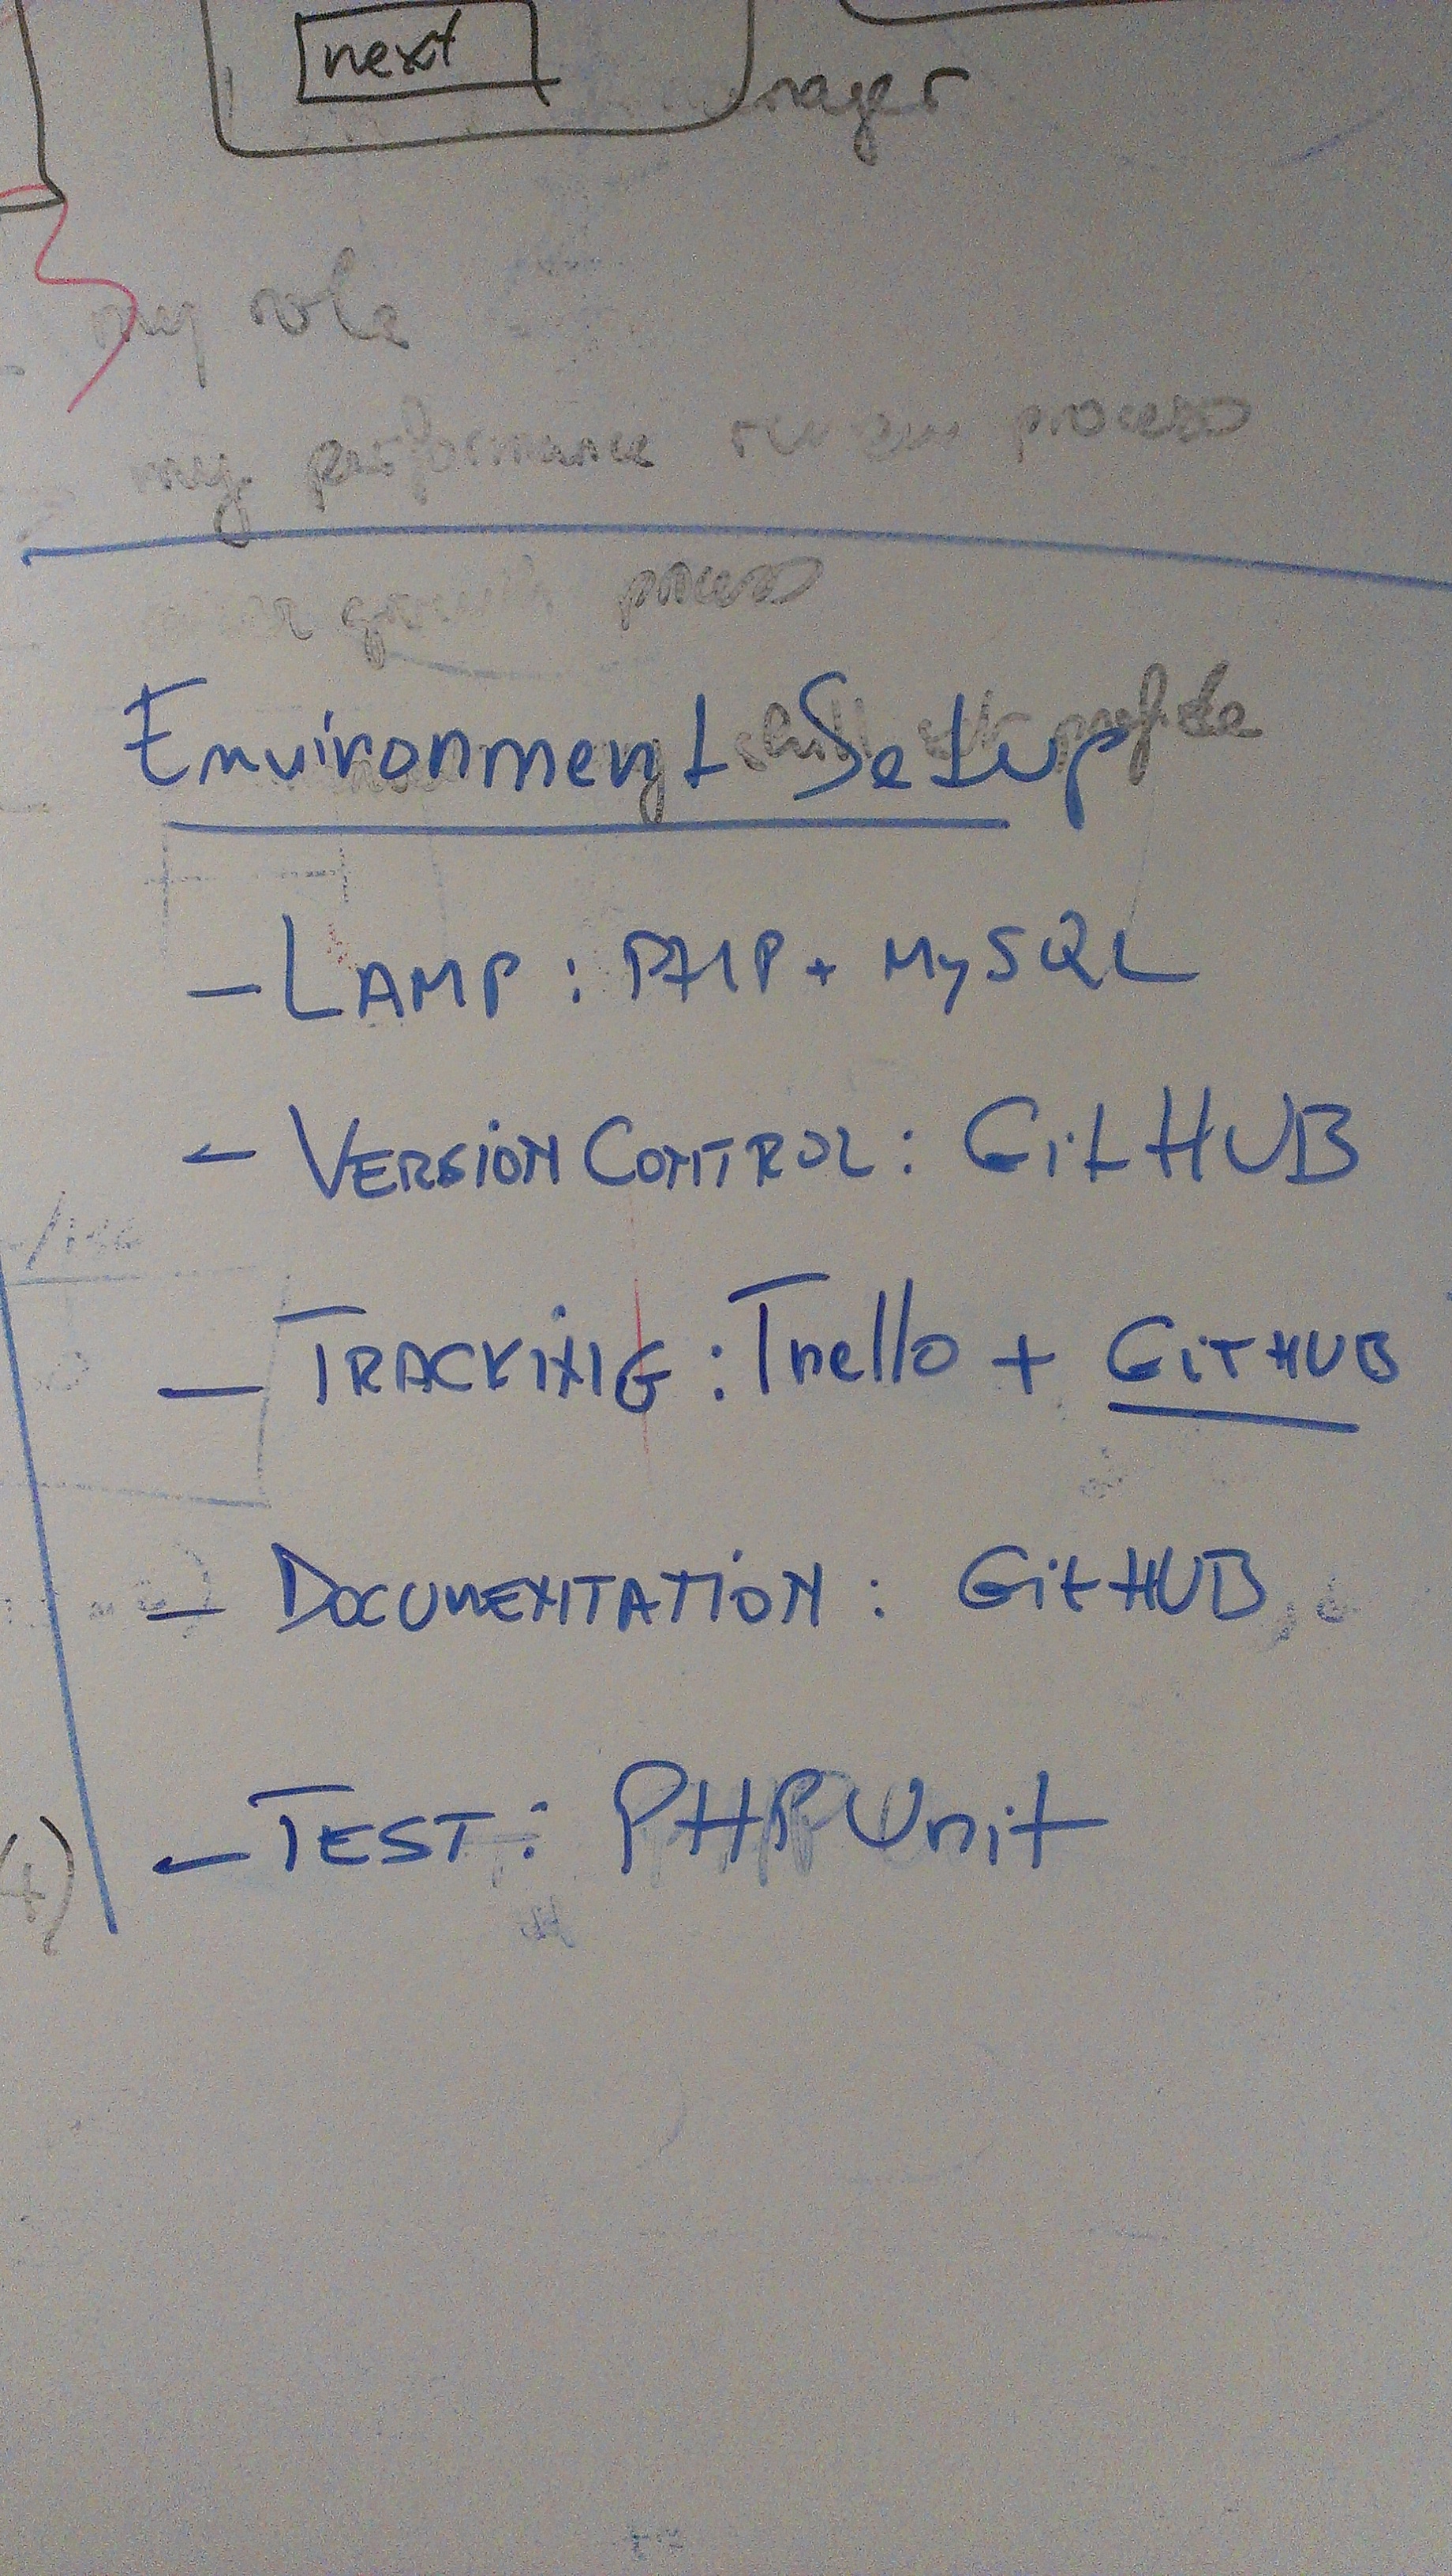 next
nager
my role
my performance review process
growth process
Environment Setup
profile
- LAMP: PHP + MySQL
- VERSION CONTROL: GitHUB
- TRACKING: Trello + GITHUB
- DOCUMENTATION: GitHUB
- TEST: PHPUnit
4)